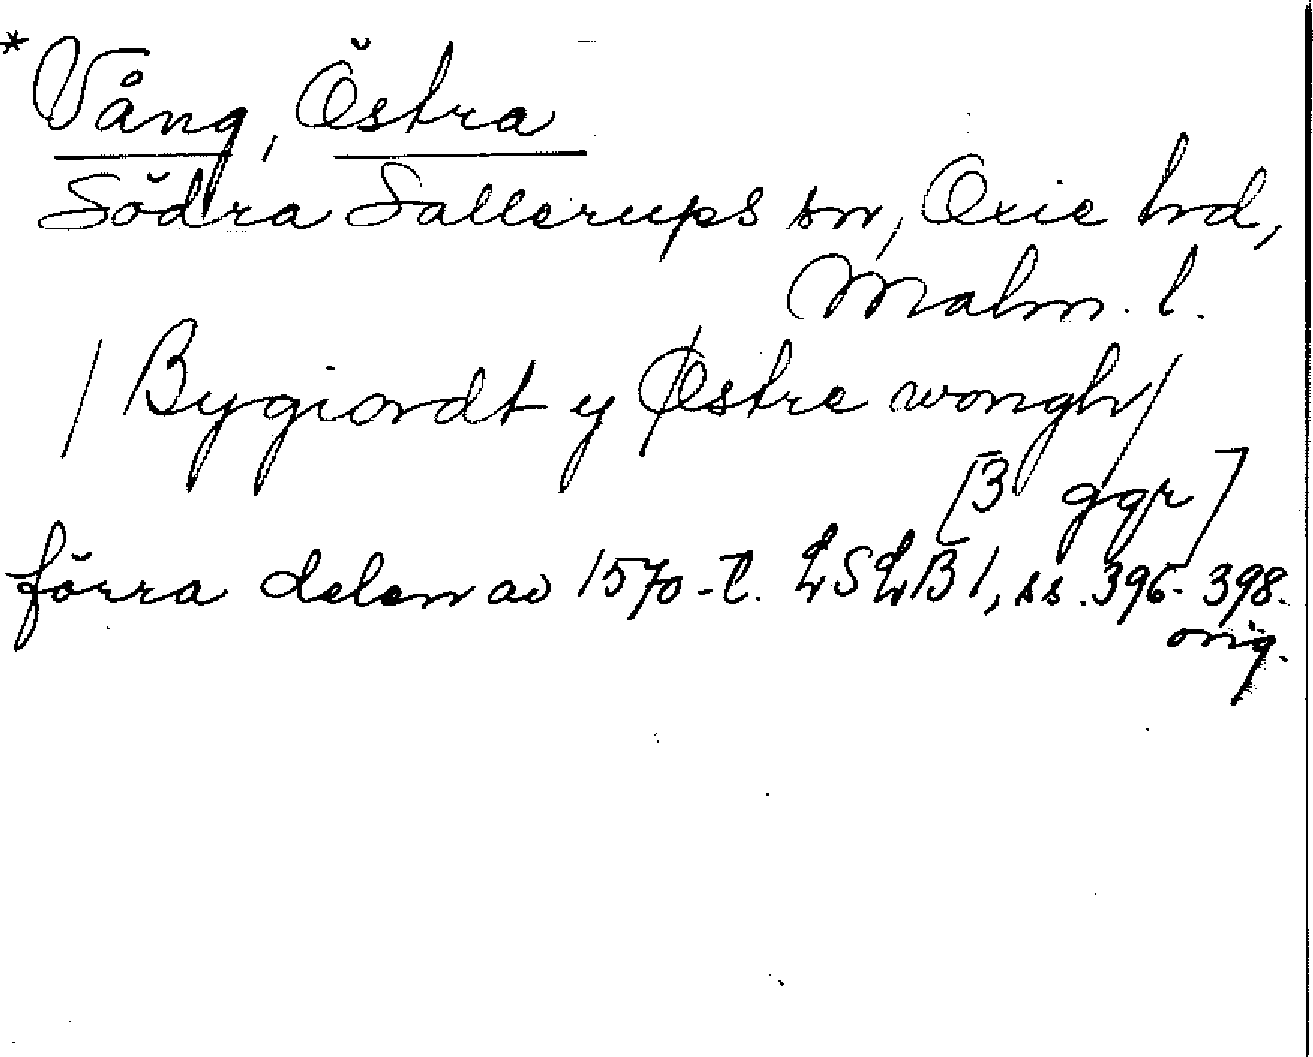 *Vång, Östra
Södra Sallerups sn, Oxie hd,
Malm. l.
/Bygiordt y Østre wongh/
[3 ggr]
förra delen av 1570-t. LSLB 1, ss. 396-398.
orig.